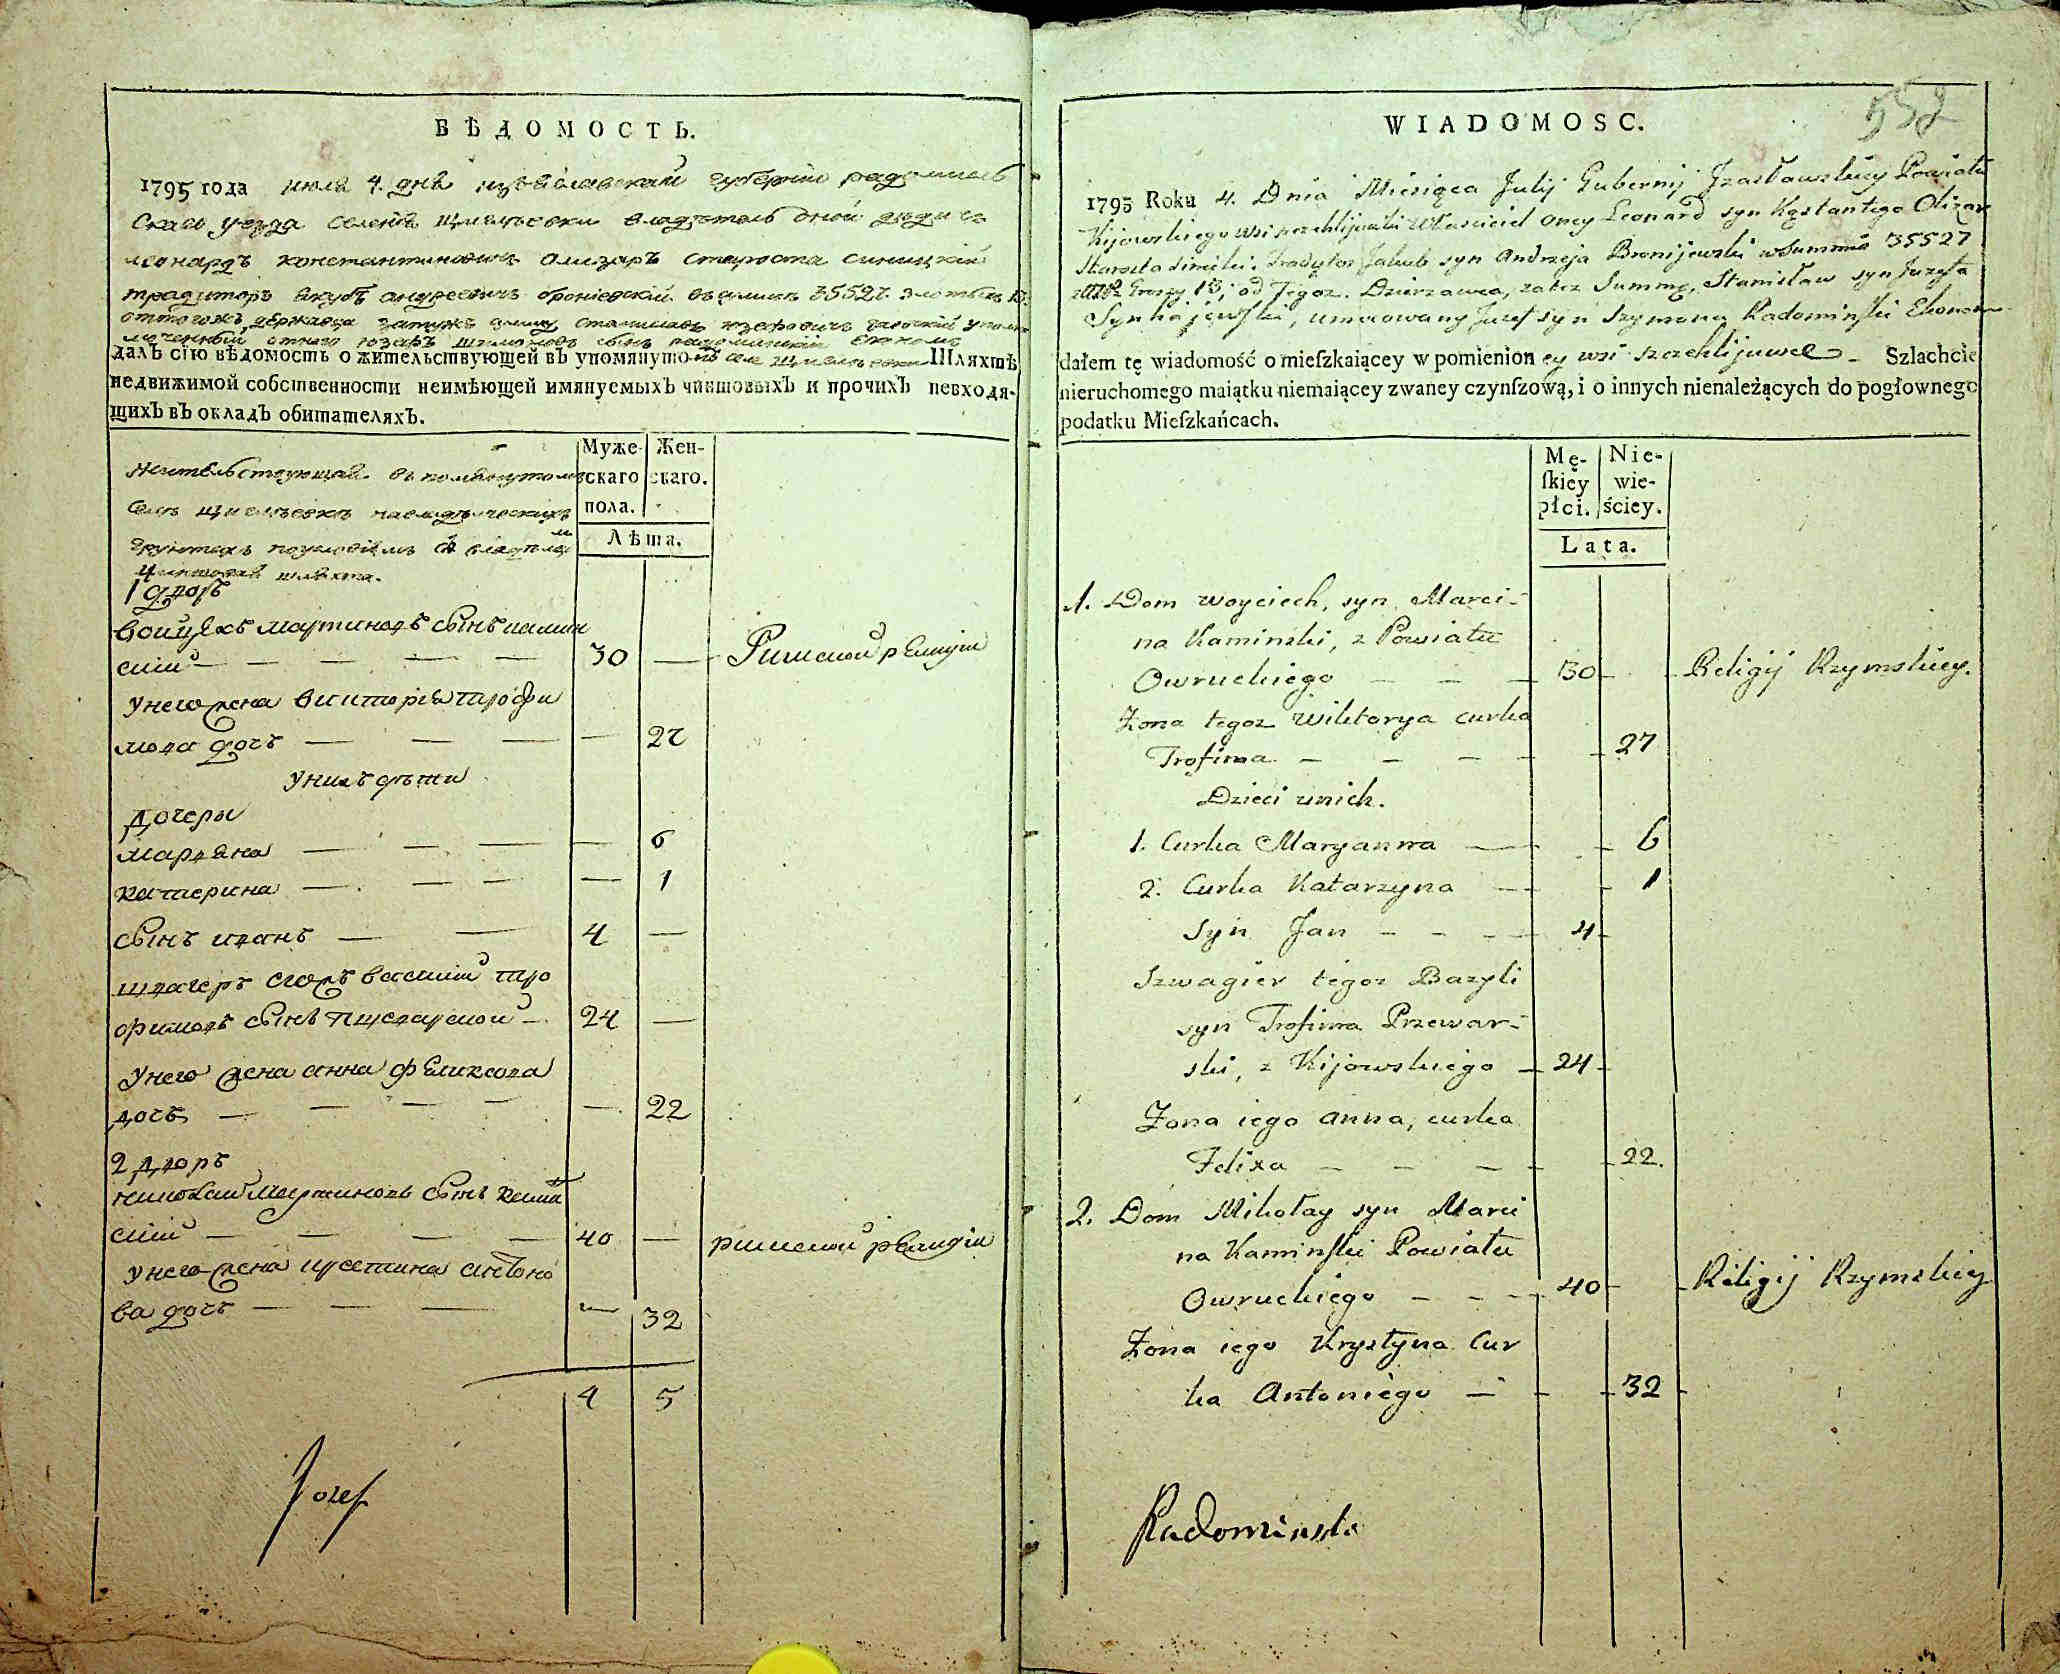 ВѢДОМОСТЬ.
1795 года июля 4. дня изяславской губернии радомысль
скаго уезда селения владѣтель оной дѣдичъ
леонардъ константиновичъ олизаръ староста синицкій
традиторъ якубъ андреевичъ броніевскій 35527
далъ сію вѣдомость о жительствующей въ упомянуто Шляхтѣ
недвижимой собственности неимѣющей имянуемыхъ чиншовыхъ и прочихъ невходя-
щихъ въ окладъ обитателяхъ.
Муже- скаго пола. Жен- скаго.
Лѣта.
жительствующая въ помянутомъ
селе
грунтахъ
чиншовая шляхта.
1 дворъ
войцехъ мартиновъ сынъ камин
скій — — — — — 30 — Римской религіи
У него жена викторія трофи
мова дочь — — — — 27
У нихъ дѣти
дочеры
марьяна — — — — 6
катерина — — — — 1
сынъ иванъ — — 4 —
швагеръ его василій тро
фимовъ сынъ — 24 —
У него жена анна феликсова
дочь — — — — — 22
2 дворъ
николай мартиновъ сынъ камин
скій — — — — 40 — римской религіи
У него жена кристина антоно
ва дочь — — — — 32
4 5
Jozef
WIADOMOSC.
552
1795 Roku 4. Dnia Miesiąca Julij Gubernij Izasławskiey Powiatu
Kijowskiego wsi Właściciel oney Leonard syn Kąstantego Olizar
Starosta Jakub syn Andrzeja Bronijewski w Summie 35527
Groszy 13, od Tegoz. Dzierzawca, Summę, Stanisław syn Jozefa
umocowany Jozef syn Szymona Radominski Ekonom
dałem tę wiadomość o mieſzkaiącey w pomienion ey wsi Szlachcie
nieruchomego maiątku niemaiącey zwaney czynſzową, i o innych nienależących do pogłownego
podatku Mieſzkańcach.
Mę- ſkiey płci. Nie- wie- ściey.
Lata.
1. Dom Woyciech, syn Marci-
na Kaminski, z Powiatu
Owruckiego — — — 30 — Religij Rzymskiey.
Zona tegoz Wiktorya curka
Trofima — — — — — 27
Dzieci unich.
1. Curka Maryanna — — 6
2. Curka Katarzyna — — 1
Syn Jan — — — 4
Szwagier tegoz Bazyli
syn Trofima Przewar-
ski, z Kijowskiego — 24
Zona iego Anna, curka
Felixa — — — — 22.
2. Dom Mikołay syn Marci
na Kaminſki Powiatu
Owruckiego — — — 40 — Religij Rzymskiey
Zona iego Krystyna Cur
ka Antoniego — — 32
Radominski